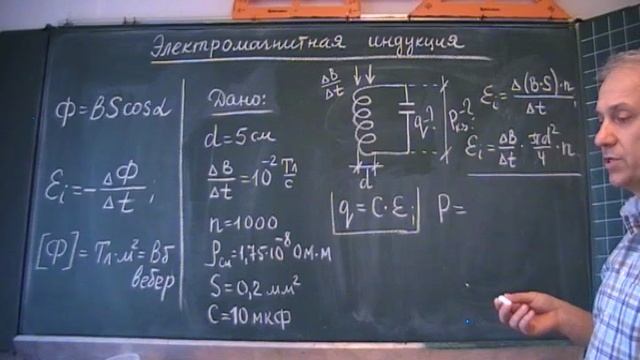 Электромагнитная индукция
Ф = BScosα
ℰi = - ΔФ/Δt ;
[Ф] = Тл·м² = Вб
вебер
Дано:
d = 5 см
ΔB/Δt = 10⁻² Тл/с
n = 1000
ρсм = 1,75·10⁻⁸ Ом·м
S = 0,2 мм²
C = 10 мкФ
ΔB/Δt
q-?
d
q = C·ℰi
P =
ℰi = Δ(B·S)·n/Δt ;
ℰi = ΔB/Δt · πd²/4 · n